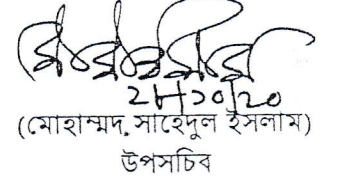 ২১।১০।২০
(মোহাম্মদ সাহেদুল ইসলাম)
উপসচিব